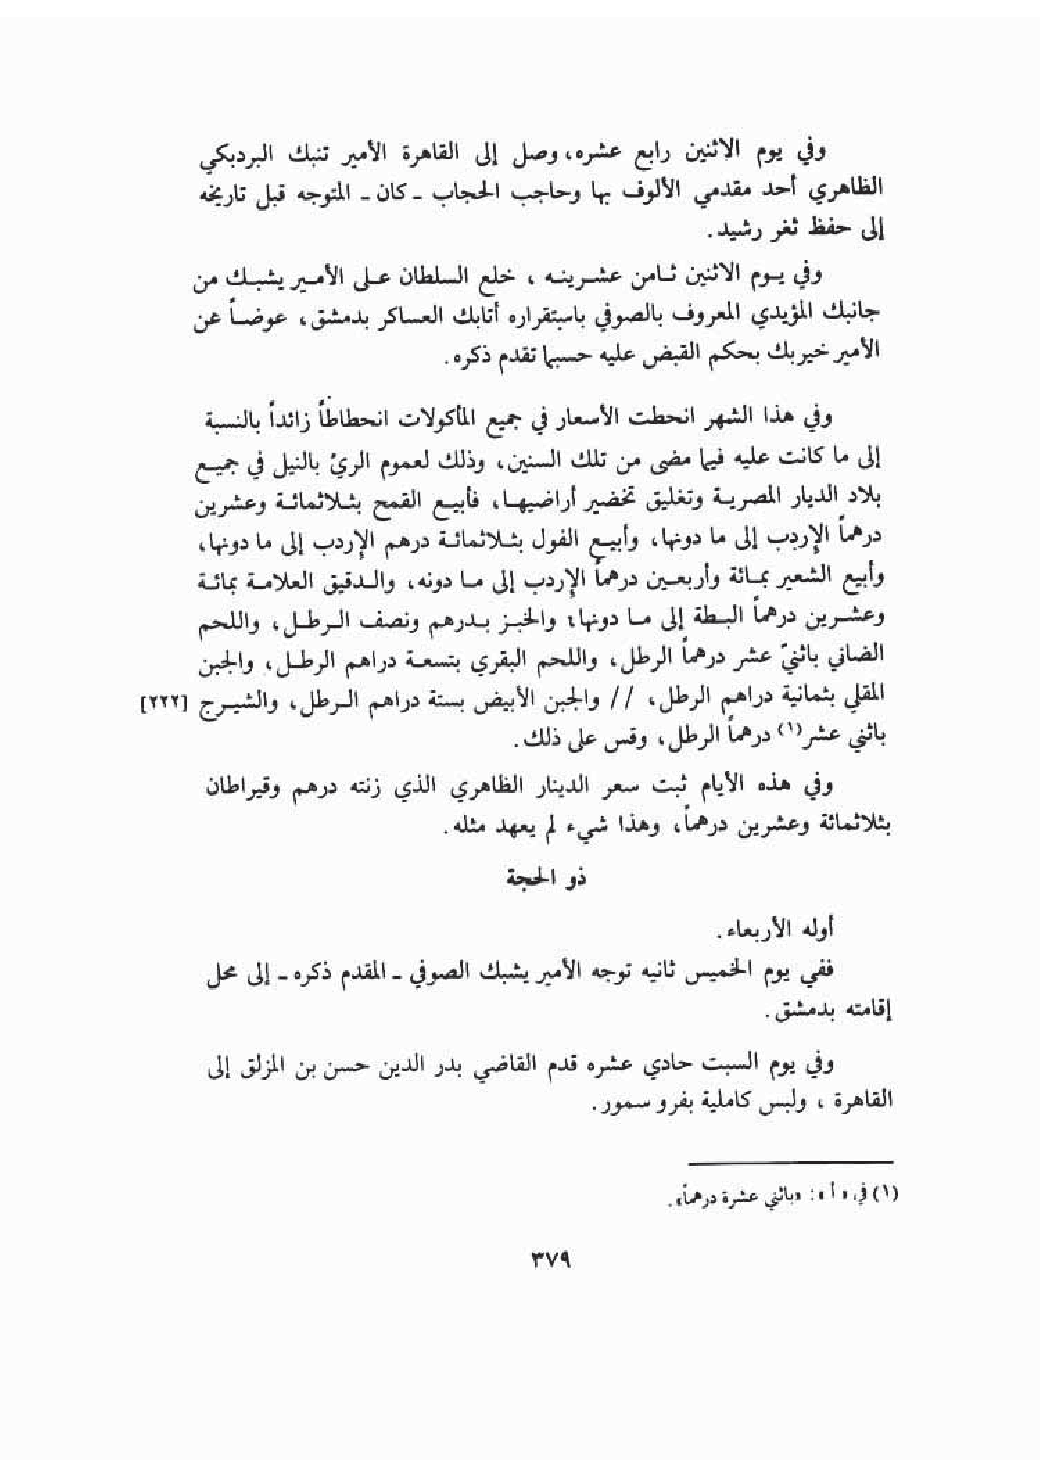 وفي يوم الاثنين رابع عشره، وصل إلى القاهرة الأمير تنبك البردبكي
الظاهري أحد مقدمي الألوف بها وحاجب الحجاب ـ كان ـ المتوجه قبل تاريخه
إلى حفظ ثغر رشيد.
وفي يوم الاثنين ثامن عشرينه ، خلع السلطان على الأمير يشبك من
جانبك المؤيدي المعروف بالصوفي باستقراره أتابك العساكر بدمشق، عوضاً عن
الأمير خيربك بحكم القبض عليه حسبما تقدم ذكره.
وفي هذا الشهر انحطت الأسعار في جميع المأكولات انحطاطاً زائداً بالنسبة
إلى ما كانت عليه فيما مضى من تلك السنين، وذلك لعموم الريّ بالنيل في جميع
بلاد الديار المصرية وتغليق تخضير أراضيها، فأبيع القمح بثلاثمائة وعشرين
درهماً الإردب إلى ما دونها، وأبيع الفول بثلاثمائة درهم الإردب إلى ما دونها،
وأبيع الشعير بمائة وأربعين درهماً الإردب إلى ما دونه، والدقيق العلامة بمائة
وعشرين درهماً البطة إلى ما دونها؛ والخبز بدرهم ونصف الرطل، واللحم
الضاني باثنيّ عشر درهماً الرطل، واللحم البقري بتسعة دراهم الرطل، والجبن
المقلي بثمانية دراهم الرطل، // والجبن الأبيض بستة دراهم الرطل، والشيرج [٢٢٢]
باثني عشر(١) درهماً الرطل، وقس على ذلك.
وفي هذه الأيام ثبت سعر الدينار الظاهري الذي زنته درهم وقيراطان
بثلاثمائة وعشرين درهماً، وهذا شيء لم يعهد مثله.
ذو الحجة
أوله الأربعاء.
ففي يوم الخميس ثانيه توجه الأمير يشبك الصوفي ـ المقدم ذكره ـ إلى محل
إقامته بدمشق.
وفي يوم السبت حادي عشره قدم القاضي بدر الدين حسن بن المزلق إلى
القاهرة ، ولبس كاملية بفرو سمور.
(١) في «أ»: «باثني عشرة درهماً».
٣٧٩